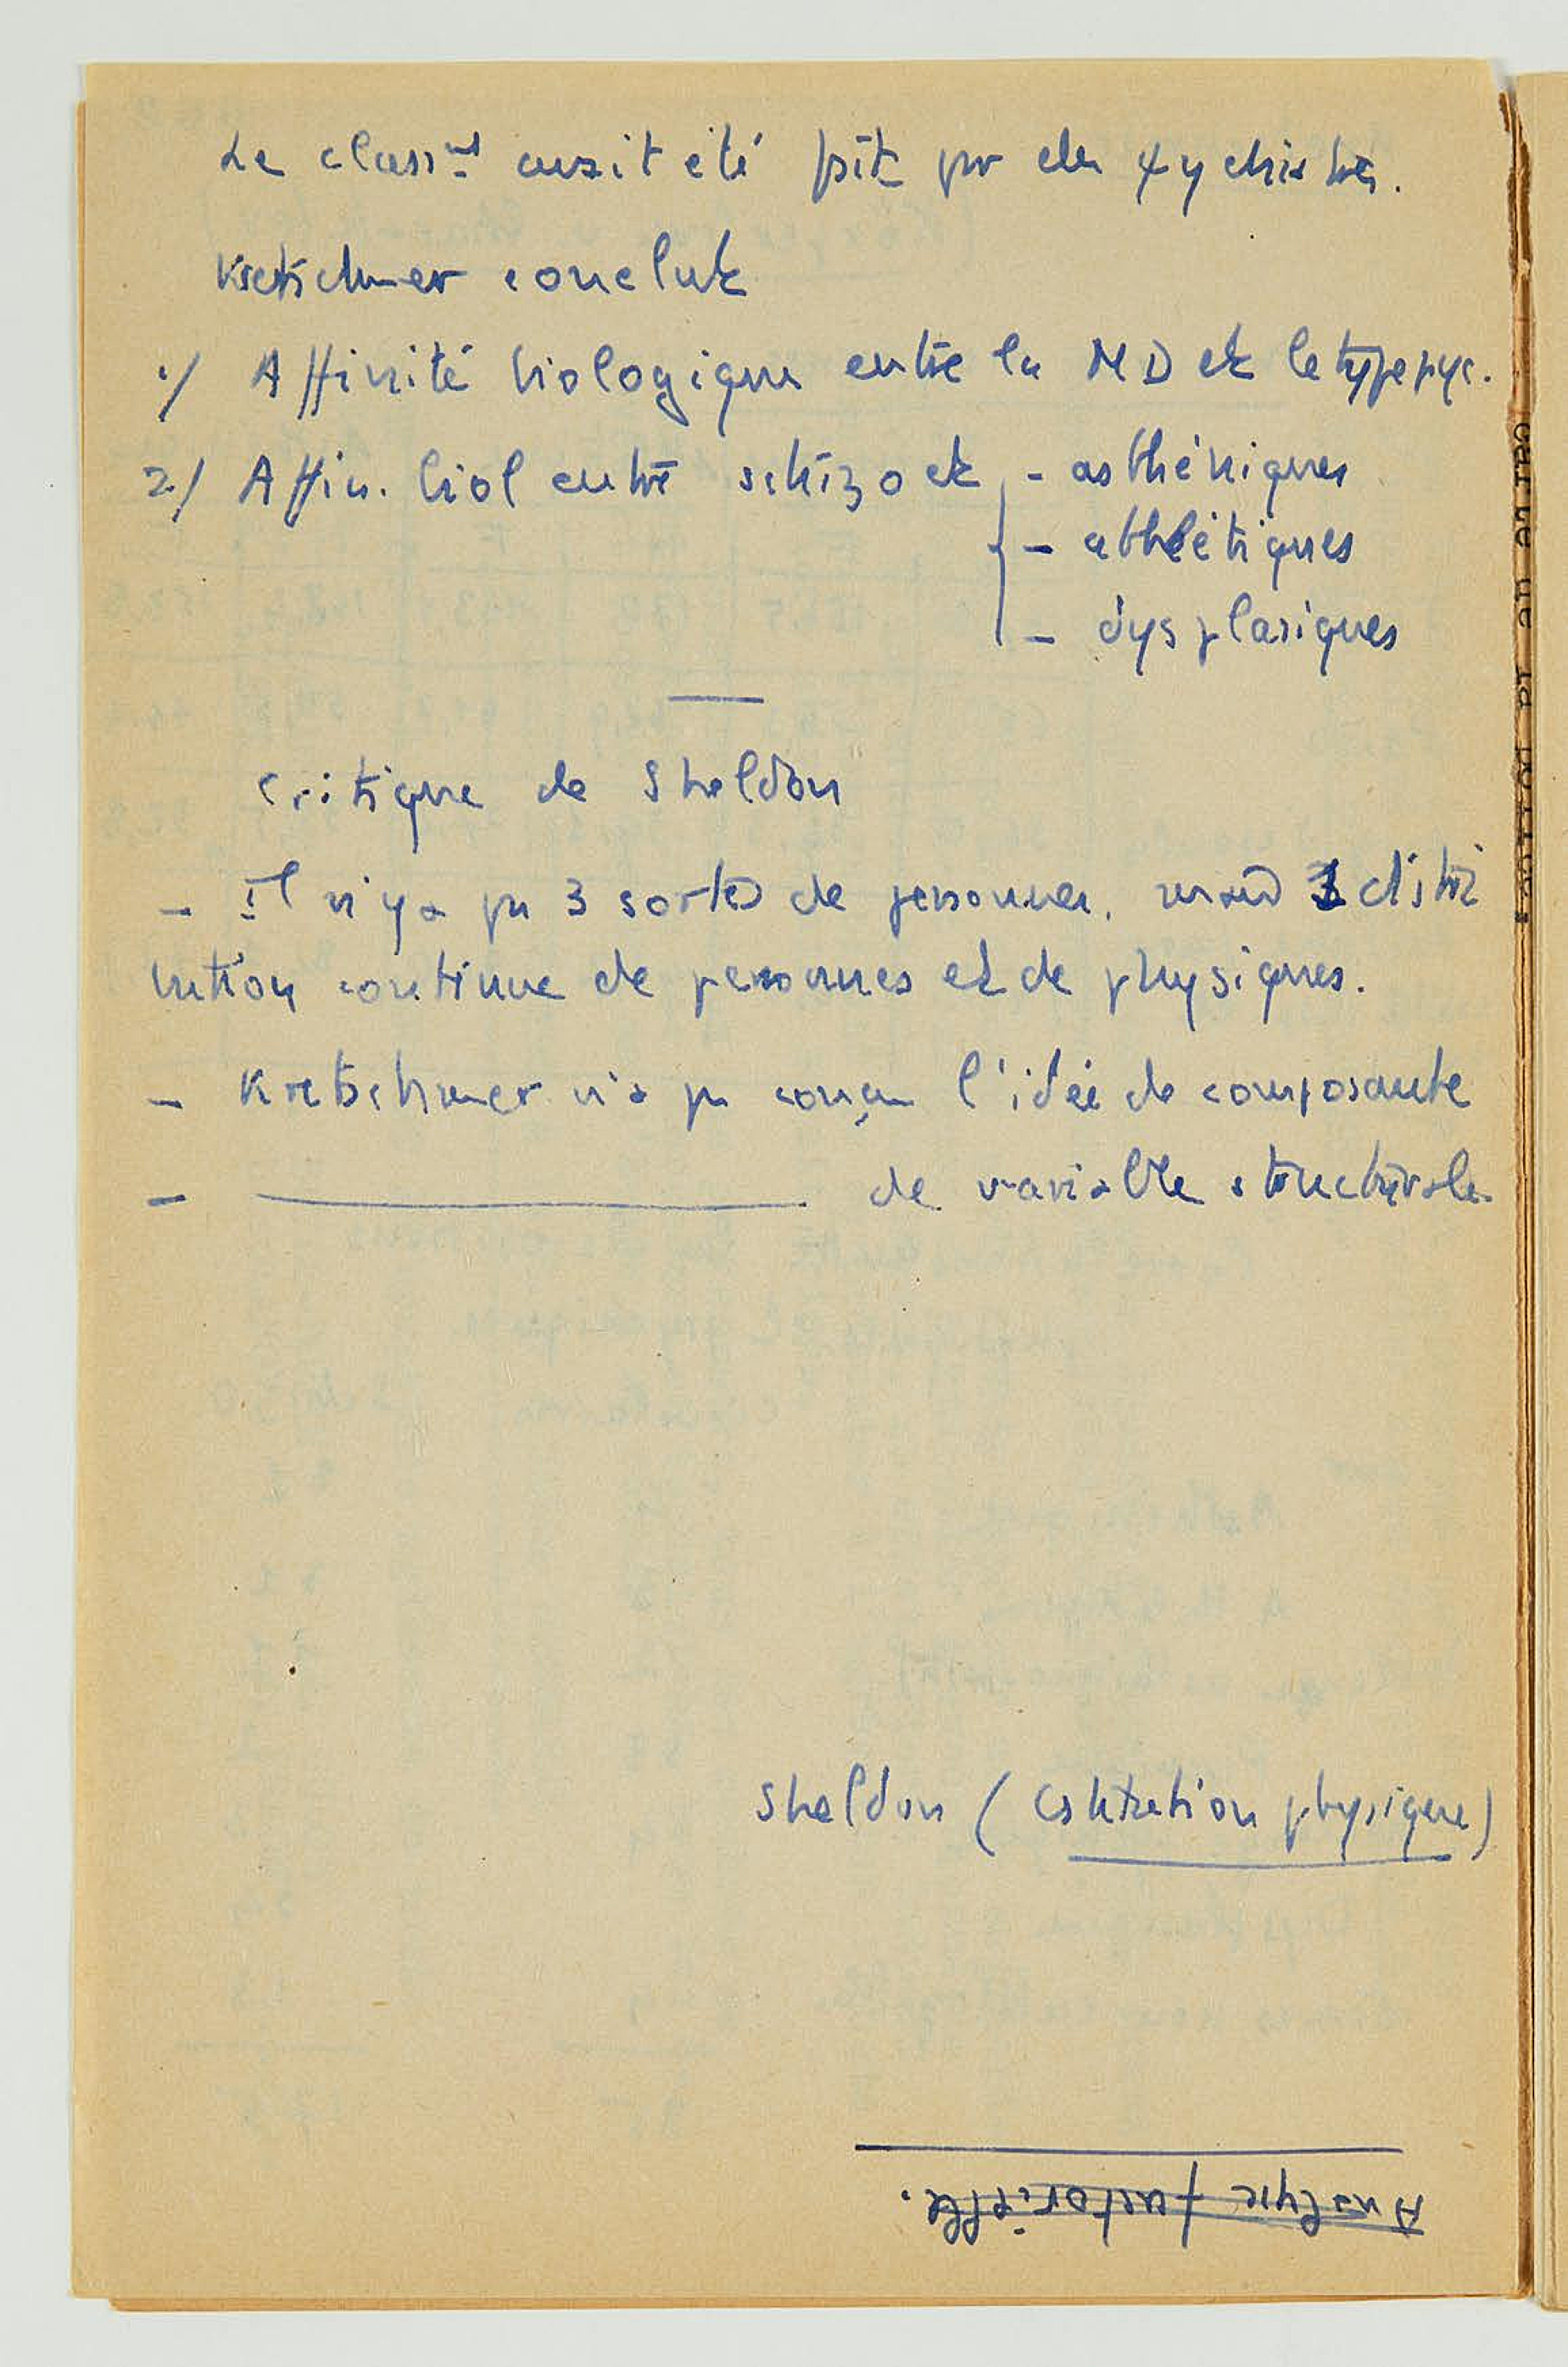 Le classnt avait été fait par des ψychiatres.
Kretschmer conclut
1/ Affinité biologique entre la MD et le type pyc.
2/ Affin. biol entre schizo et - asthéniques
- athlétiques
- dysplasiques
Critique de Sheldon
- Il n'y a pas 3 sortes de personnes, mais 1 distri
bution continue de personnes et de physiques.
- Kretschmer n'a pas conçu l'idée de composante
- ——— de variable structurale
Sheldon (Cstitution physique)
Analyse factorielle.